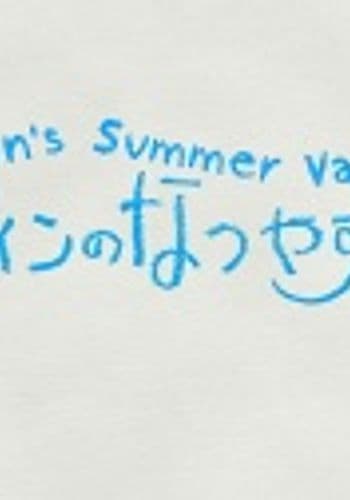 n's Summer Va
インのなつやす